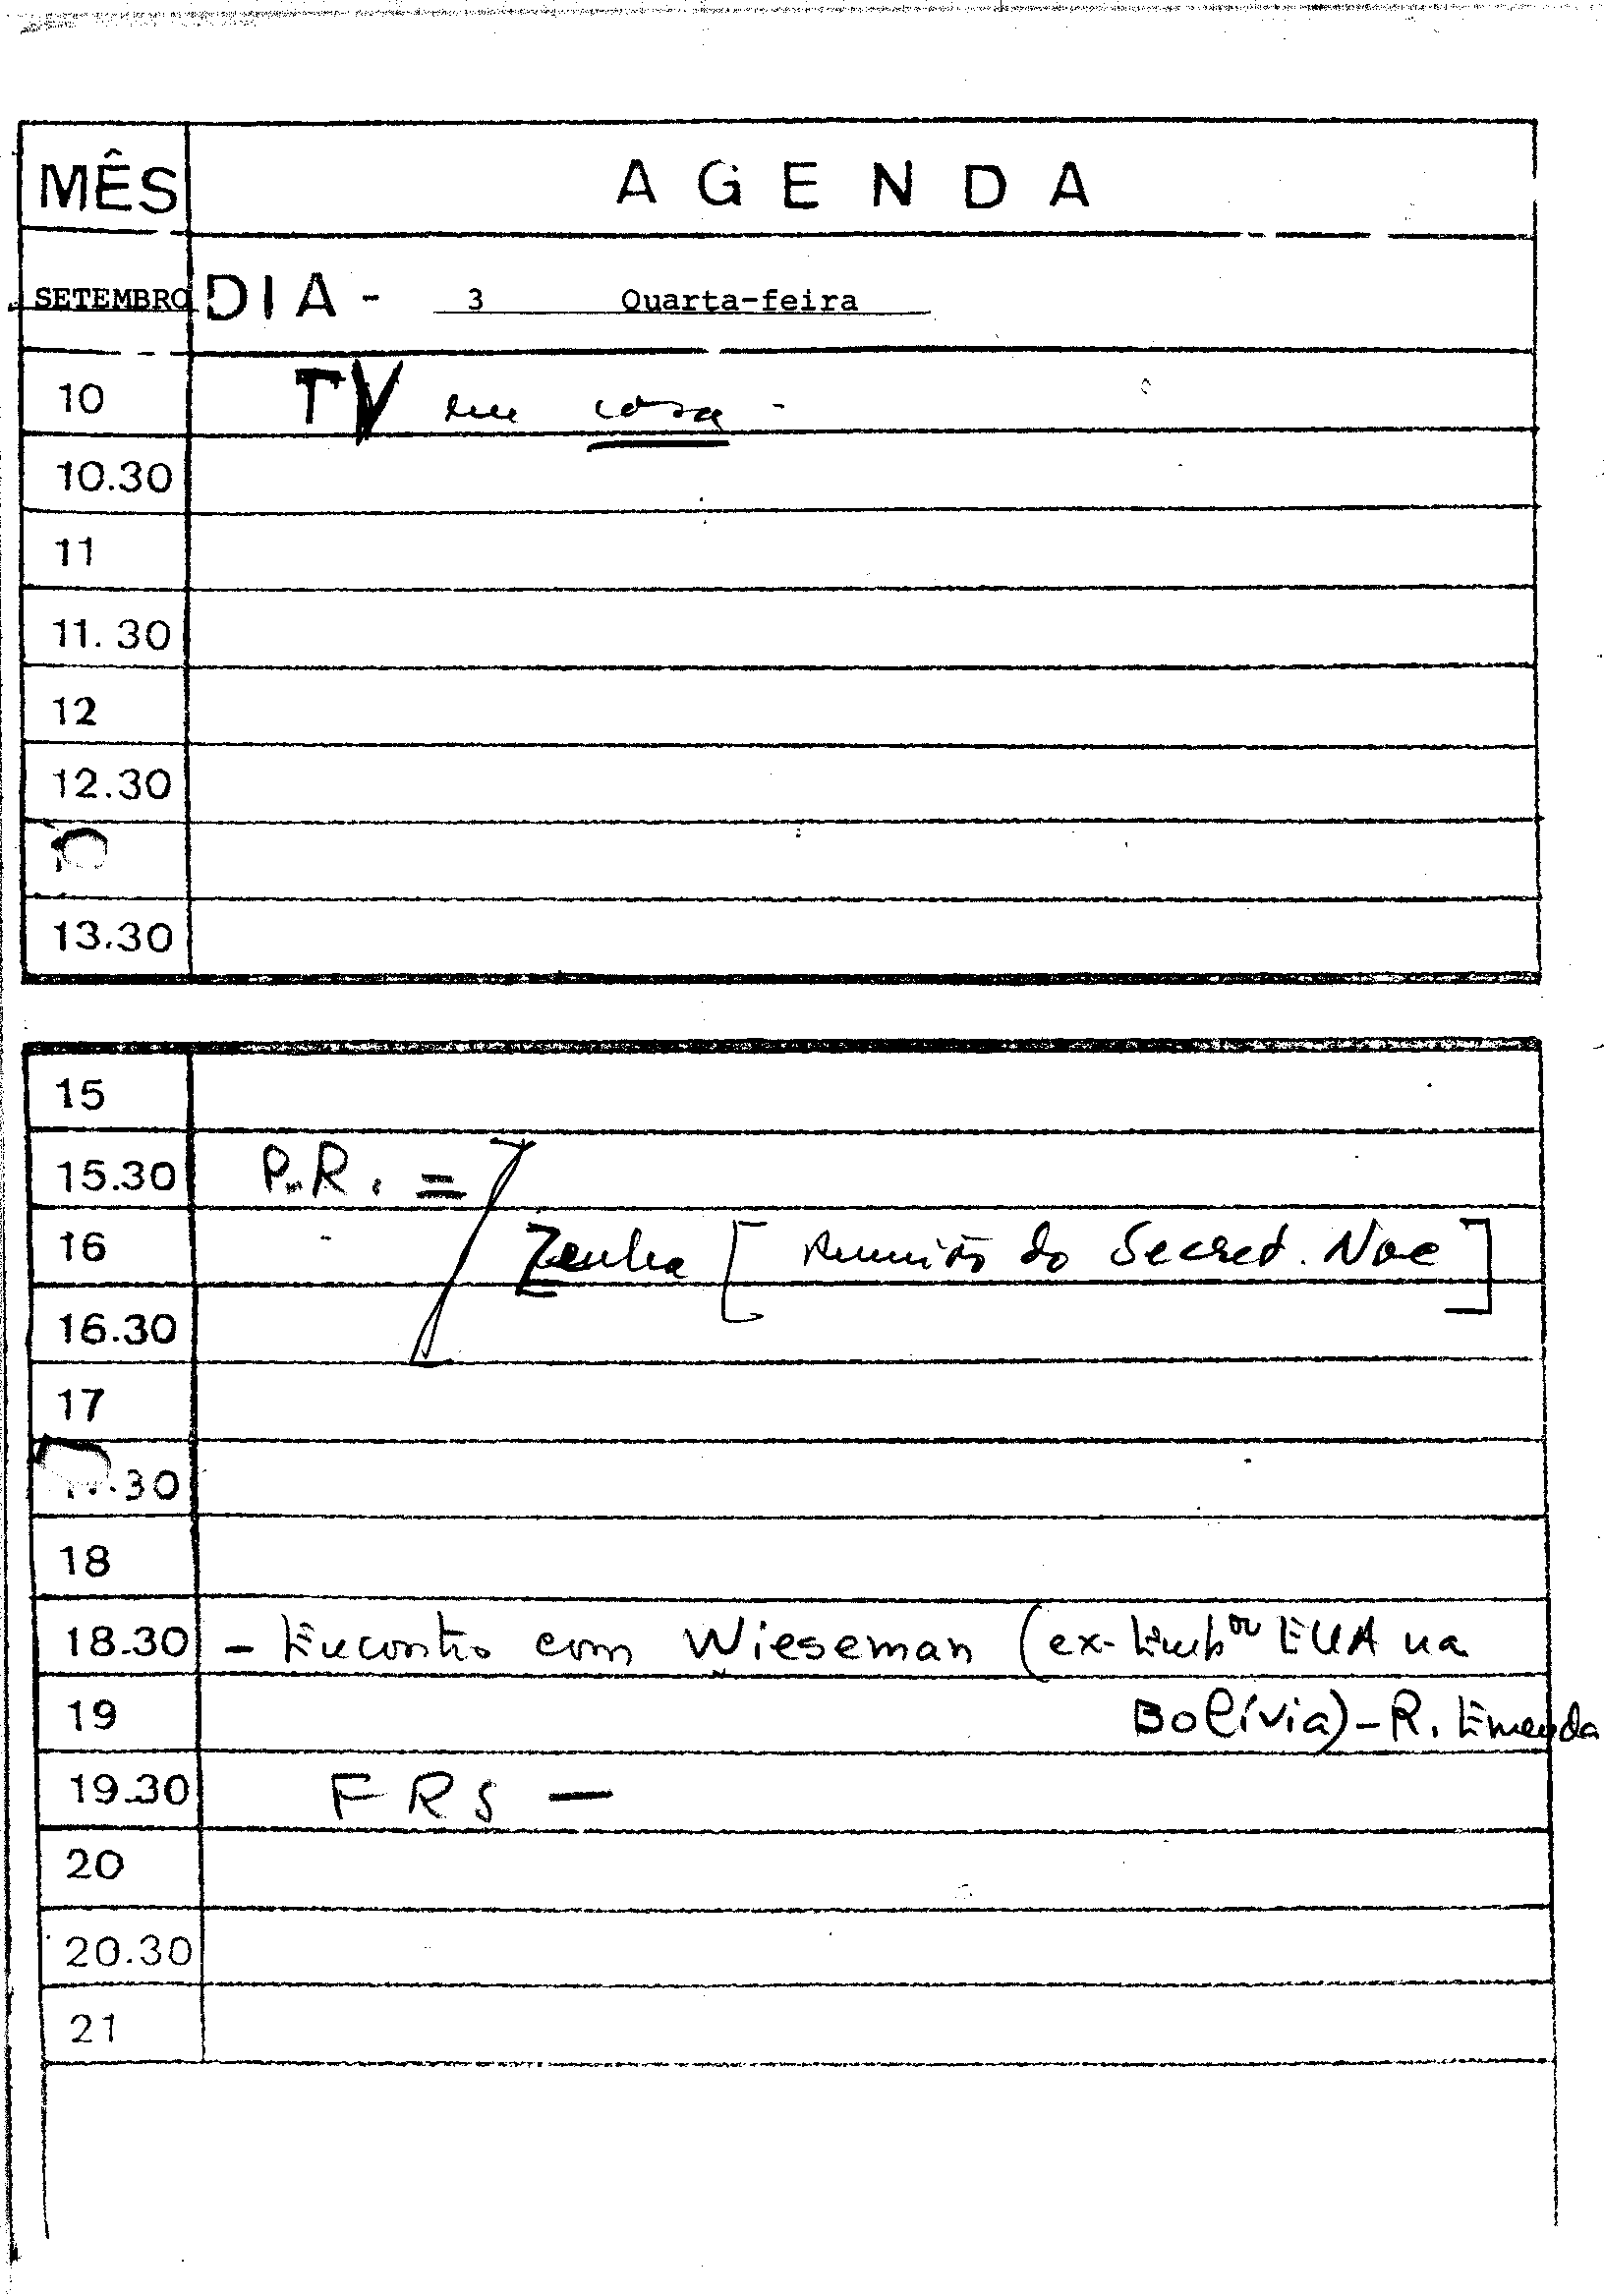 MÊS AGENDA
SETEMBRO DIA - 3 Quarta-feira
10 TV em casa -
10.30
11
11.30
12
12.30
13.30
15
15.30 P.R. =
16 Zenha [Reunião do Secret. Nac]
16.30
17
.30
18
18.30 - Encontro com Wieseman (ex-Emb or EUA na
19 Bolívia) - R. Emenda
19.30 FRS -
20
20.30
21